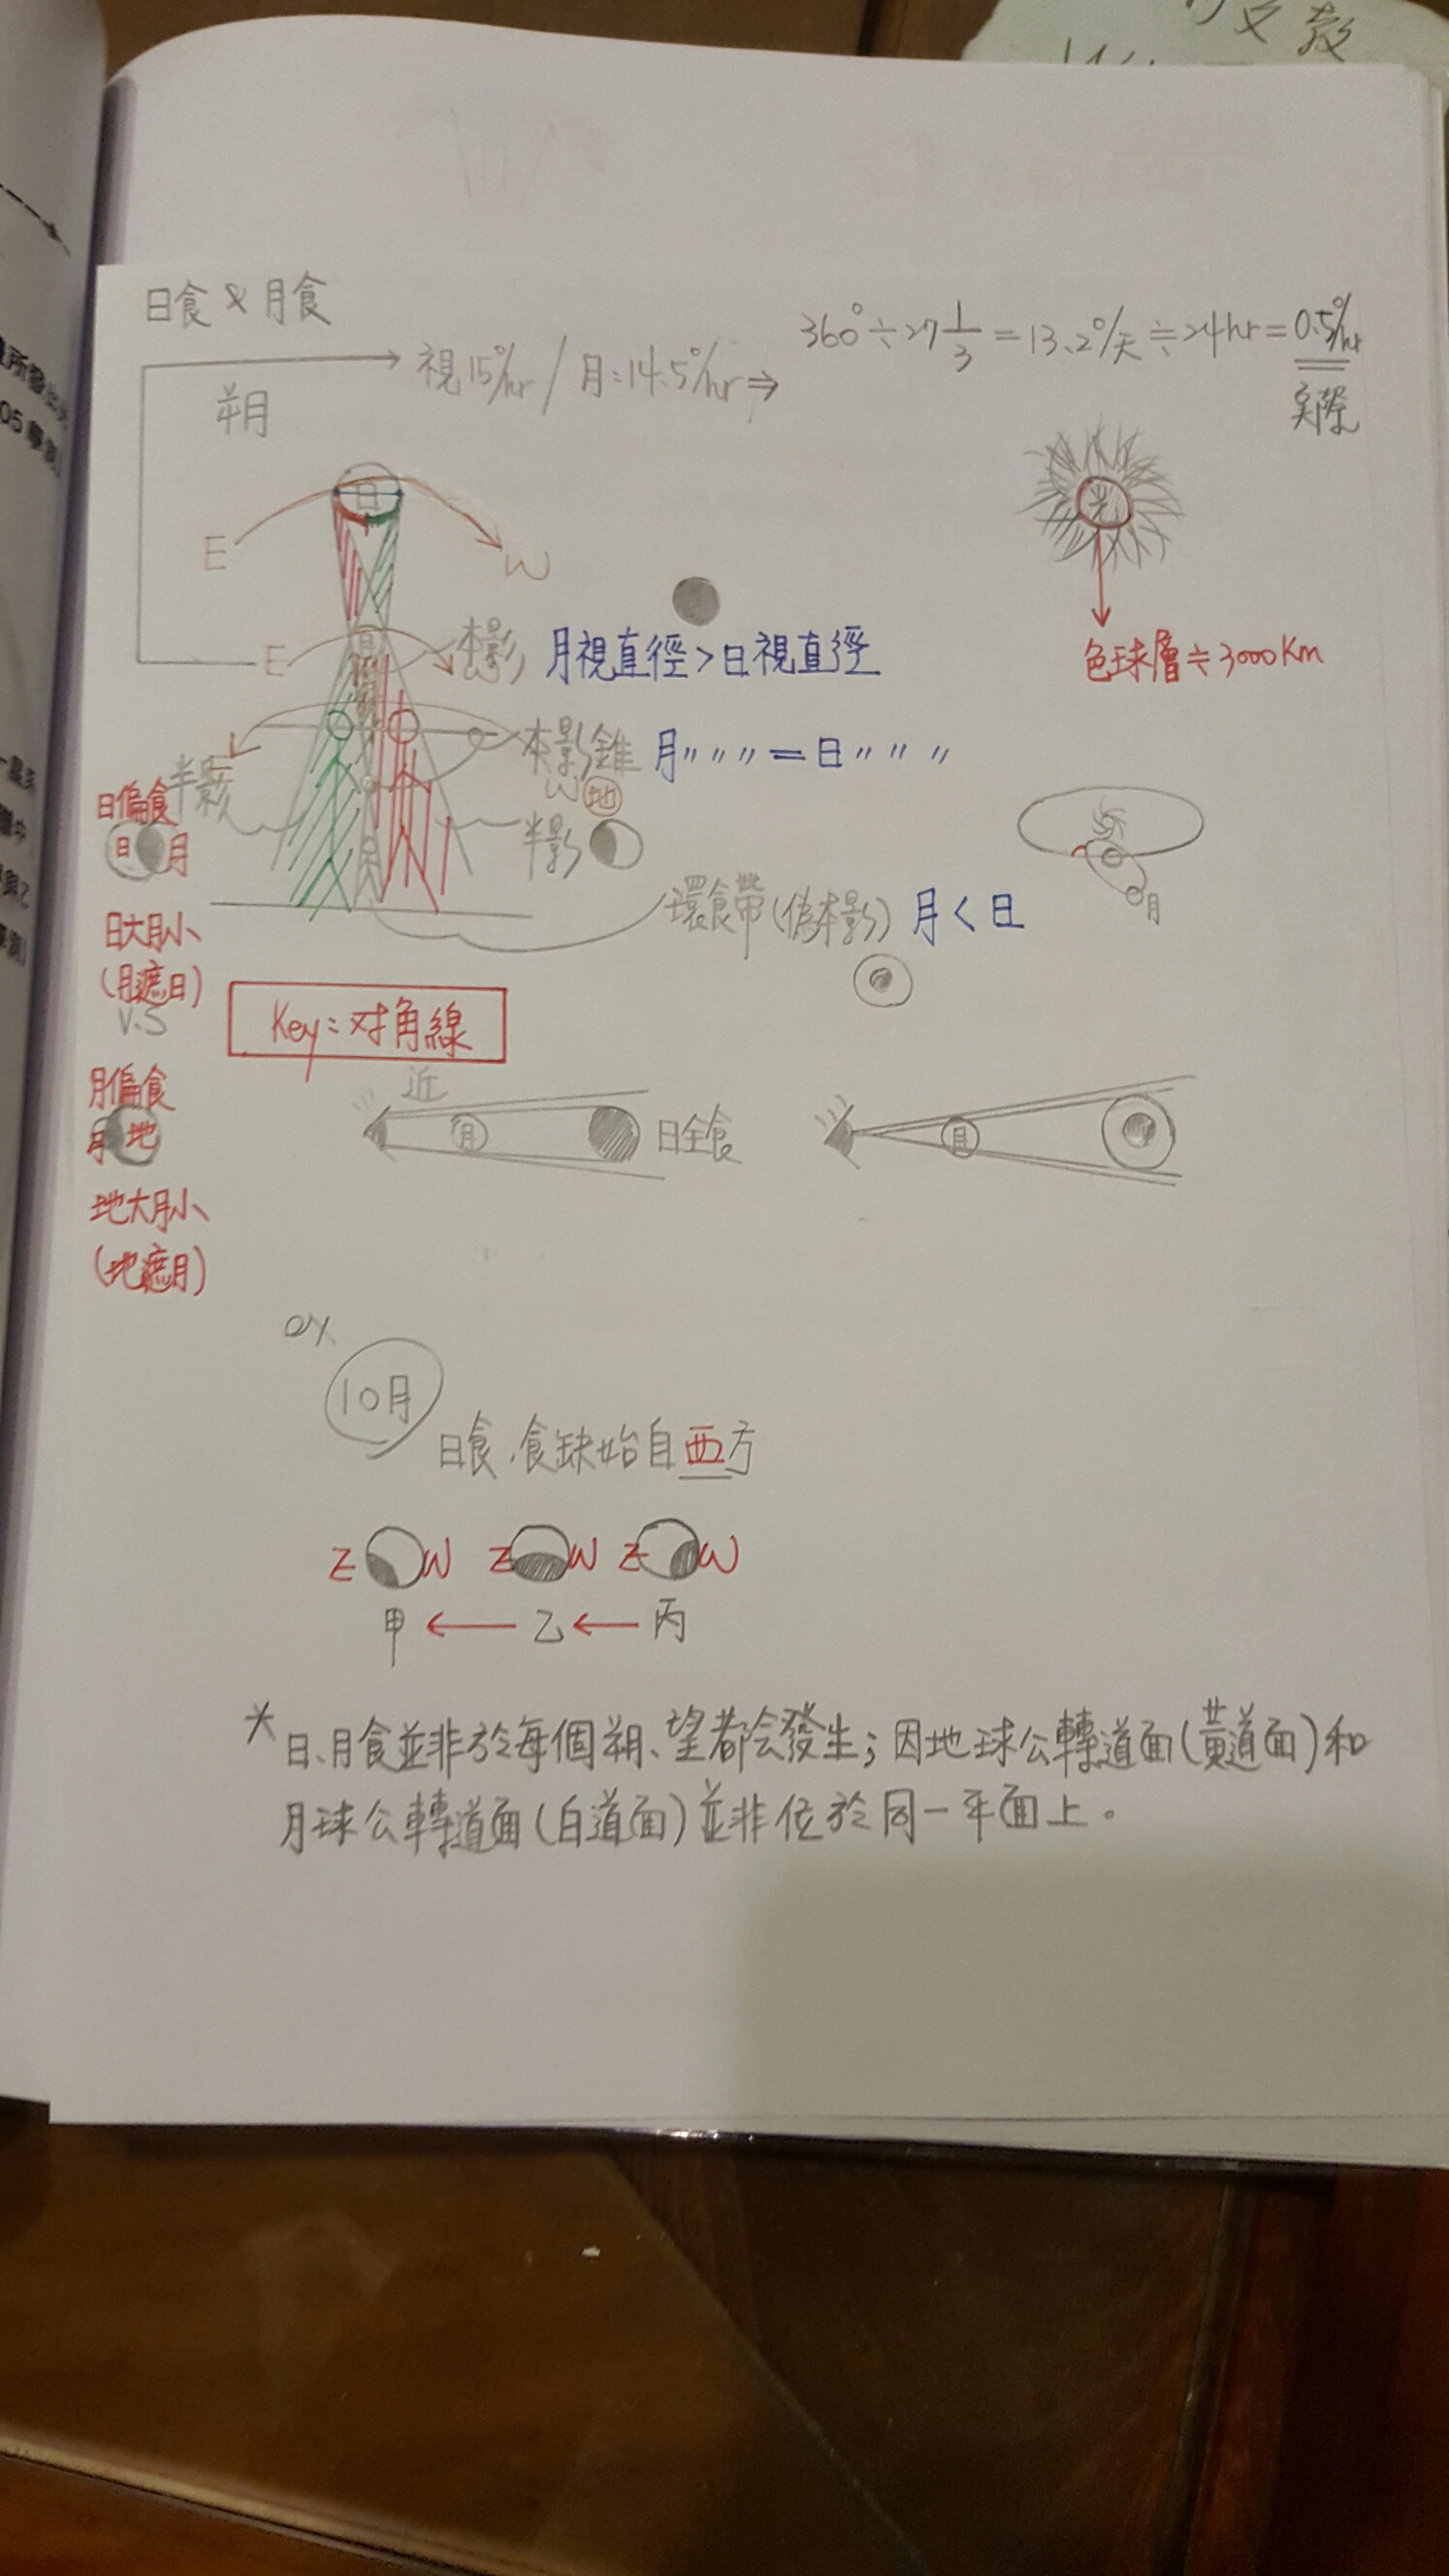 日食 & 月食
視15°/hr / 月:14.5°/hr ⇒
360° ÷ 27 1/3 = 13.2°/天 ÷ 24hr = 0.5°/hr
實際
朔月
日
E
W
光
色球層≒3000Km
E
月
本影
月視直徑>日視直徑
本影錐
月〃〃〃=日〃〃〃
W
地
半影
半影
日偏食
日 月
月
環食帶(偽本影)
月<日
月
日大月小
(月遮日)
V.S
Key:对角線
月偏食
月 地
地大月小
(地遮月)
近
月
日全食
月
10月
日食,食缺始自西方
E W E W E W
甲 ← 乙 ← 丙
* 日、月食並非於每個朔、望都会發生;因地球公轉道面(黃道面)和
月球公轉道面(白道面)並非位於同一平面上。